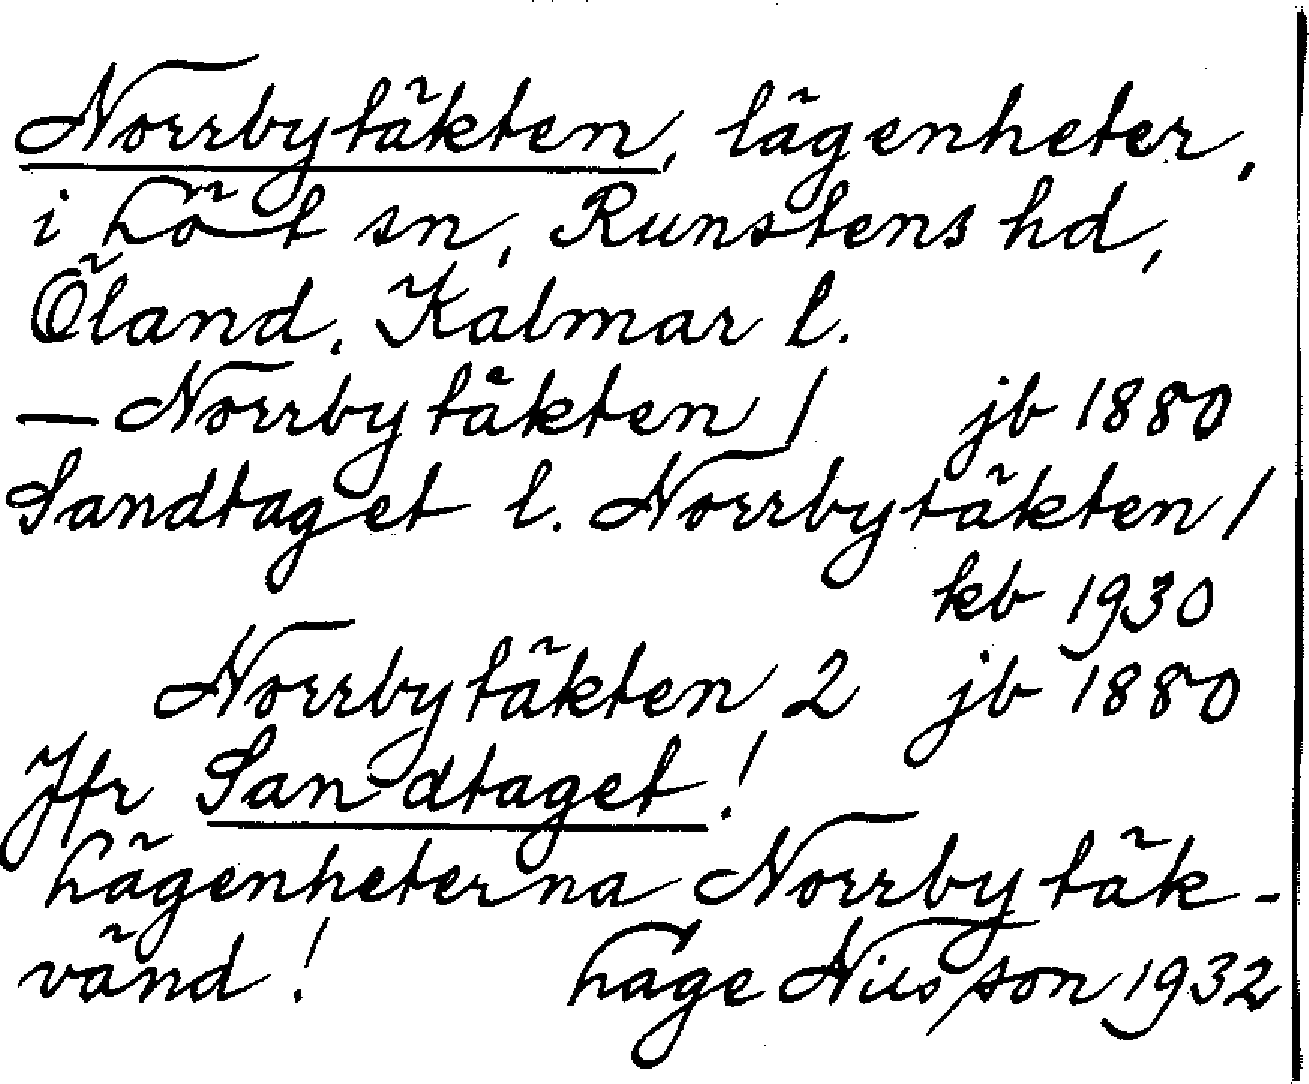 Norrbytäkten, lägenheter,
i Löt sn, Runstens hd,
Öland, Kalmar l.
— Norrbytåkten 1 jb 1880
Sandtaget l. Norrbytäkten 1
kb 1930
Norrbytäkten 2 jb 1880
Jfr Sandtaget!
Lägenheterna Norrbytäk-
vänd! Lage Nilsson 1932